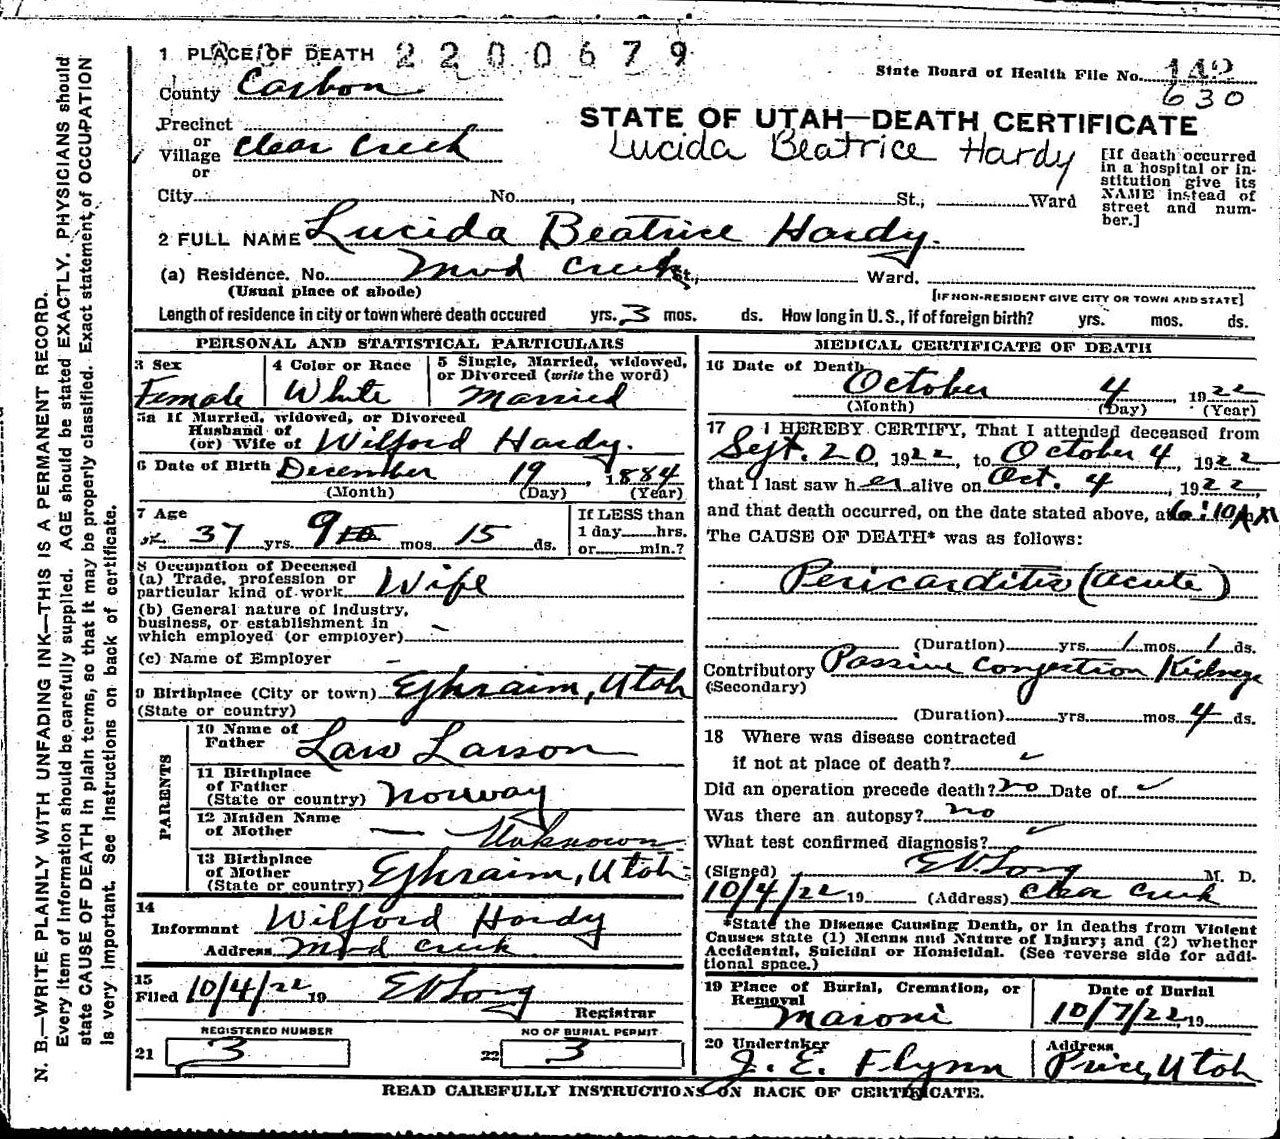 1 PLACE OF DEATH 2200679
State Board of Health File No. 142
630
County Carbon
STATE OF UTAH—DEATH CERTIFICATE
Lucida Beatrice Hardy
Precinct
or
Village Clear Creek
or
City No. St., Ward
[If death occurred
in a hospital or in-
stitution give its
NAME instead of
street and num-
ber.]
2 FULL NAME Lucida Beatrice Hardy.
(a) Residence. No. Mud Creek St., Ward.
(Usual place of abode)
[IF NON-RESIDENT GIVE CITY OR TOWN AND STATE]
Length of residence in city or town where death occured yrs. 3 mos. ds. How long in U. S., if of foreign birth? yrs. mos. ds.
PERSONAL AND STATISTICAL PARTICULARS
3 Sex
Female
4 Color or Race
White
5 Single, Married, widowed,
or Divorced (write the word)
Married
5a If Married, widowed, or Divorced
Husband of
(or) Wife of Wilford Hardy.
6 Date of Birth December 19, 1884
(Month) (Day) (Year)
7 Age
37 yrs. 9 10 mos. 15 ds.
If LESS than
1 day hrs.
or min.?
8 Occupation of Deceased
(a) Trade, profession or
particular kind of work Wife
(b) General nature of industry,
business, or establishment in
which employed (or employer) –
(c) Name of Employer –
9 Birthplace (City or town) Ephraim, Utah
(State or country)
PARENTS
10 Name of
Father Lars Larson
11 Birthplace
of Father
(State or country) Norway
12 Maiden Name
of Mother — Unknown
13 Birthplace
of Mother
(State or country) Ephraim, Utah
14
Informant Wilford Hardy
Address Mud Creek
15
Filed 10/4/22 19 E V Long
Registrar
REGISTERED NUMBER
21 3
NO OF BURIAL PERMIT
22 3
MEDICAL CERTIFICATE OF DEATH
16 Date of Death
October 4, 1922
(Month) (Day) (Year)
17 I HEREBY CERTIFY, That I attended deceased from
Sept. 20, 1922, to October 4, 1922
that I last saw her alive on Oct. 4, 1922,
and that death occurred, on the date stated above, at 6:10 AM
The CAUSE OF DEATH* was as follows:
Pericarditis (acute)
(Duration) yrs. 1 mos. 1 ds.
Contributory Passive Congestion Kidneys
(Secondary)
(Duration) yrs. mos. 4 ds.
18 Where was disease contracted
if not at place of death? ✓
Did an operation precede death? no Date of ✓
Was there an autopsy? no
What test confirmed diagnosis? ✓
(Signed) E V. Long M. D.
10/4/22 19 (Address) Clear Creek
*State the Disease Causing Death, or in deaths from Violent
Causes state (1) Menns and Nature of Injury; and (2) whether
Accidental, Suicidal or Homicidal. (See reverse side for addi-
tional space.)
19 Place of Burial, Cremation, or
Removal
Maroni
Date of Burial
10/7/22, 19
20 Undertaker
J. E. Flynn
Address
Price, Utah
READ CAREFULLY INSTRUCTIONS ON BACK OF CERTIFICATE.
N. B.—WRITE PLAINLY WITH UNFADING INK—THIS IS A PERMANENT RECORD.
Every item of information should be carefully supplied. AGE should be stated EXACTLY. PHYSICIANS should
state CAUSE OF DEATH in plain terms, so that it may be properly classified. Exact statement of OCCUPATION
is very important. See instructions on back of certificate.